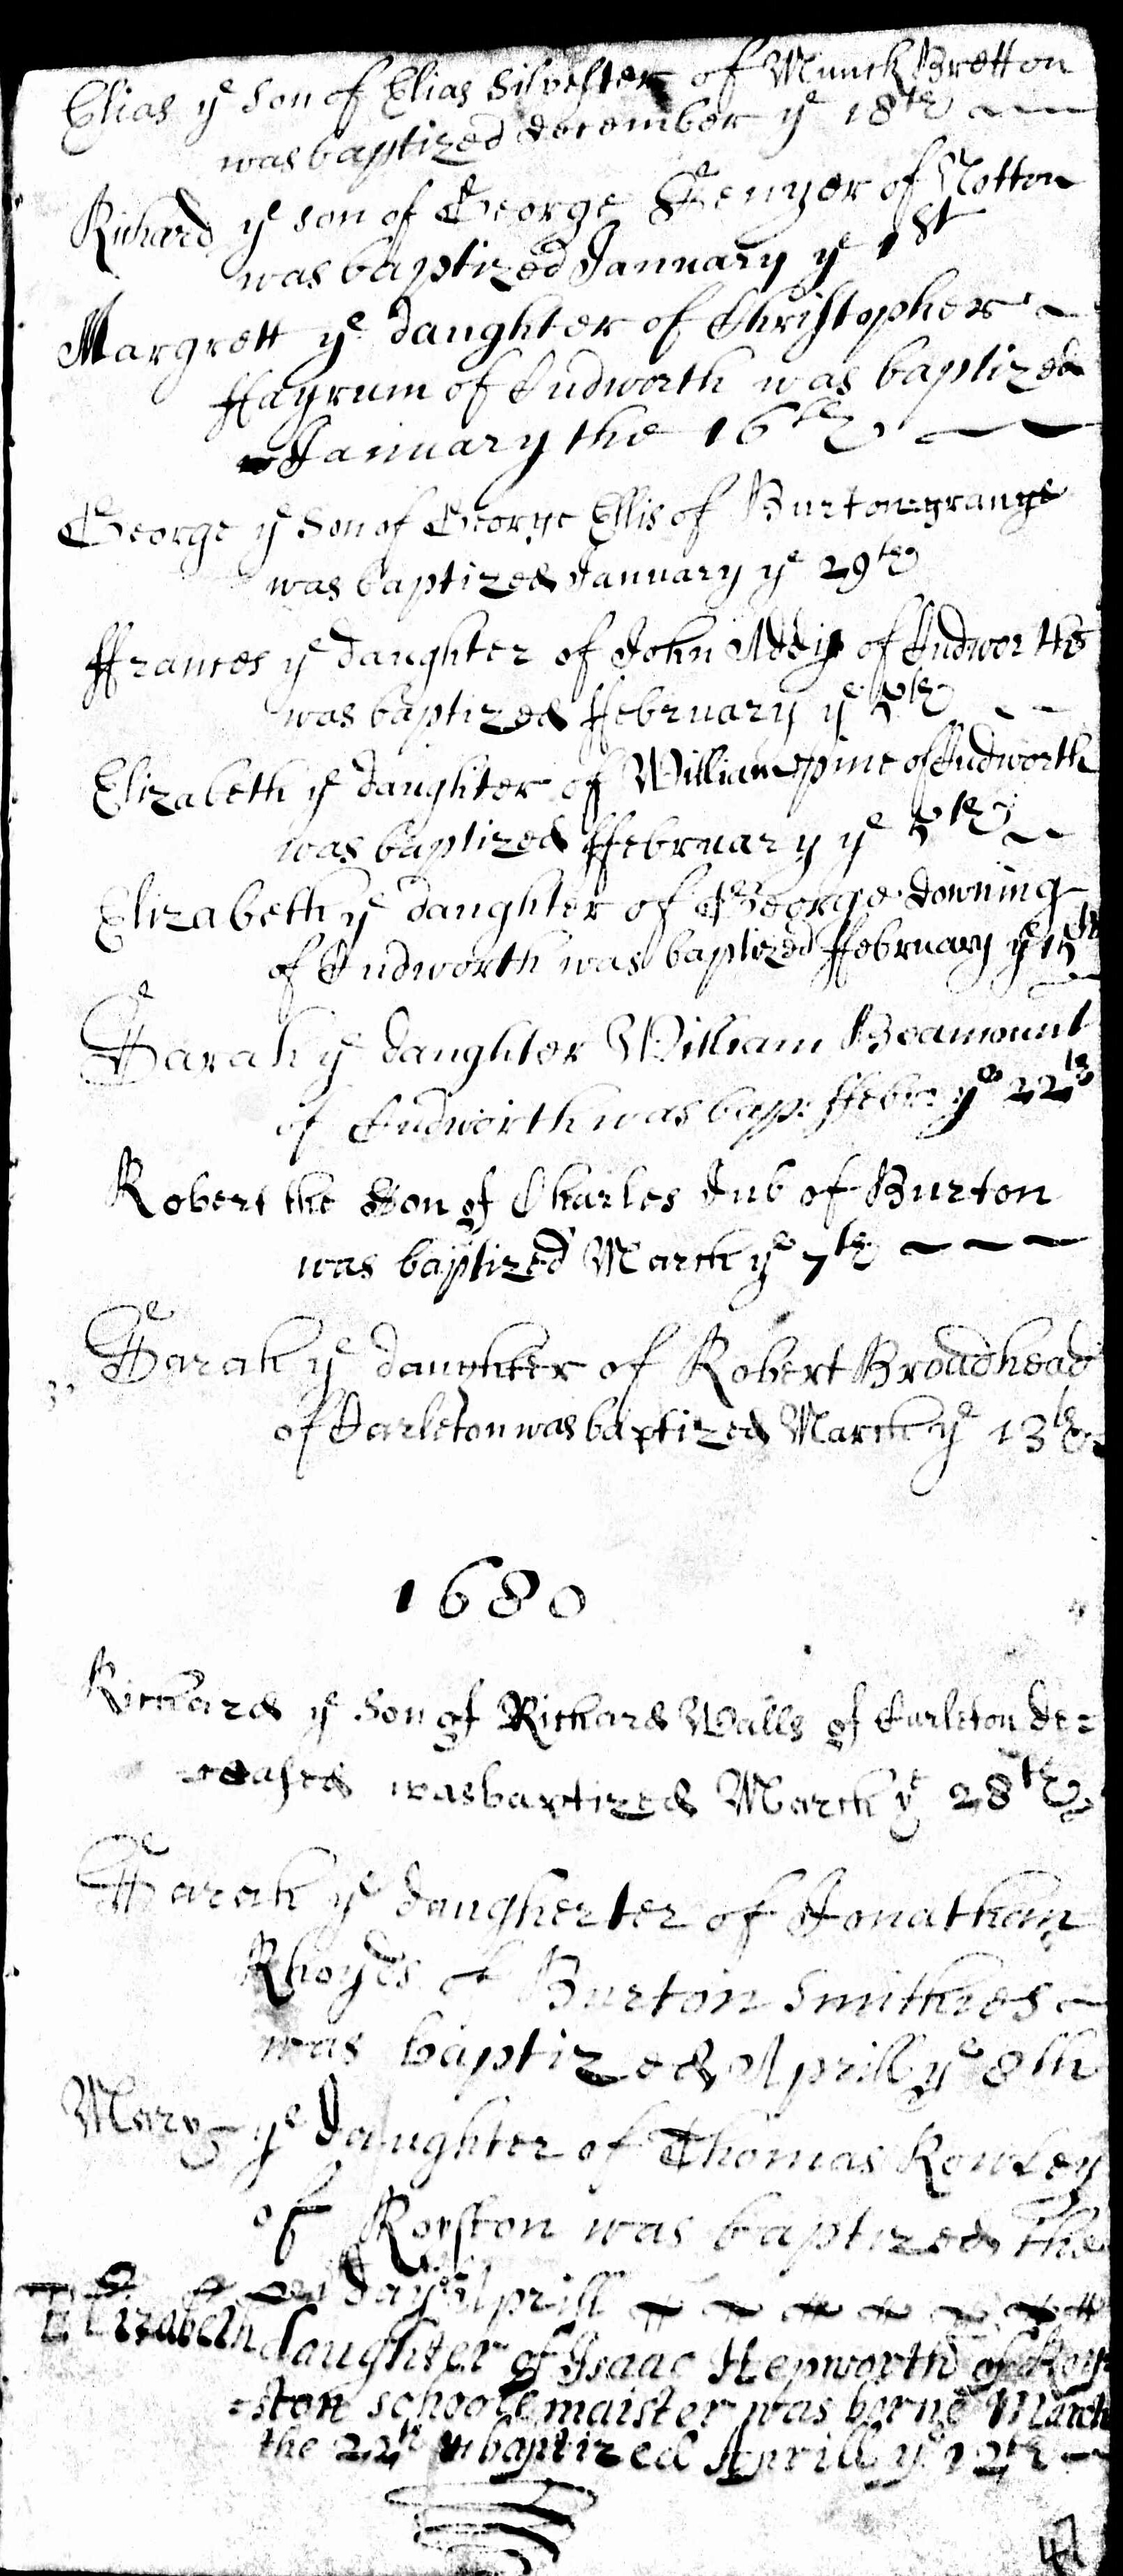 Elias ye Son of Elias Silvester of Munck Bretton
was baptized december ye 18th
Richard ye son of George of Notton
was baptized January ye 1st
Margrett ye daughter of Christopher
Hayrum of Cudworth was baptized
January the 16th
George ye Son of George Ellis of Burton grange
was baptized January ye 29th
ffrances ye daughter of John Addy of Cudworth
was baptized ffebruary ye 5th
Elizabeth ye daughter of William pine of Cudworth
was baptized ffebruary ye 5th
Elizabeth ye daughter of George downing
of Cudworth was baptized ffebruary ye 15th
Sarah ye daughter William Beamount
of Cudworth was bap: ffebr: ye 22th
Robert the Son of Charles Jub of Burton
was baptized March ye 7th
Sarah ye daughter of Robert Broadhead
of Carleton was baptized March ye 13th
1680
Richard ye Son of Richard Walls of Carleton de=
ceased was baptized March ye 28th
Sarah ye daugherter of Jonathan
Rhoyds of Burton Smithies
was baptized Aprill ye 8th
Mary ye daughter of Thomas Rowley
of Royston was baptized the
day Aprill
Elizabeth daughter of Isaac Hepworth of Roy=
=ston schoolemaister was borne March
the 22th baptized Aprill ye 12th